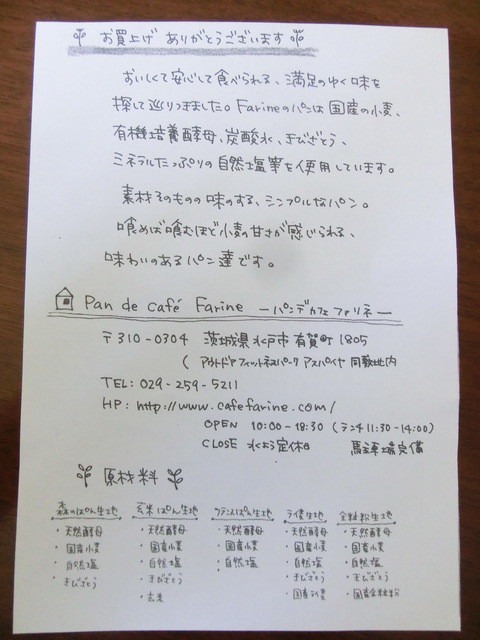 お買上げ ありがとうございます
おいしくて安心して食べられる、満足のゆく味を
探して巡りつきました。Farineのパンは国産の小麦、
有機培養酵母、炭酸水、きびざとう、
ミネラルたっぷりの自然塩等を使用しています。
素材そのものの味のする、シンプルなパン。
噛めば噛むほど小麦の甘さが感じられる、
味わいのあるパン達です。
Pan de café Farine ーパンデカフェファリネー
〒310-0304 茨城県水戸市有賀町1805
( アウトドアフィットネスパーク アスパイヤ 同敷地内
TEL: 029-259-5211
HP: http://www.cafefarine.com/
OPEN 10:00-18:30 (ランチ11:30-14:00)
CLOSE 水よう定休日 駐車場完備
原材料
森のぱん生地 玄米ぱん生地 フランスぱん生地 ライ麦生地 全粒粉生地
・天然酵母 ・天然酵母 ・天然酵母 ・天然酵母 ・天然酵母
・国産小麦 ・国産小麦 ・国産小麦 ・国産小麦 ・国産小麦
・自然塩 ・自然塩 ・自然塩 ・自然塩 ・自然塩
・きびざとう ・きびざとう ・きびざとう ・きびざとう
・玄米 ・国産ライ麦 ・国産全粒粉